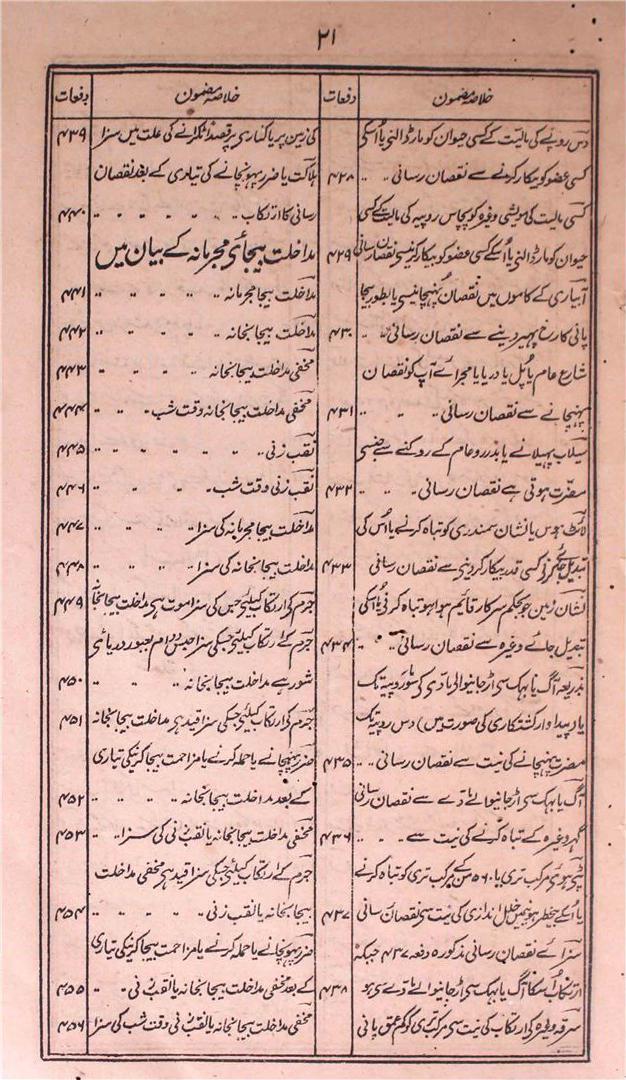 ۲۱
خلاصہ مضمون
دفعات
دس روپے کی مالیت کے کسی حیوان کو مار ڈالنی یا اُسکی
کسی عضو کو بیکار کرنے سے نقصان رسانی ۴۲۸
کسی مالیت کی مویشی وغیرہ کو پچاس روپیہ کی مالیت کے کسی
حیوان کو مار ڈالنی یا اُسکے کسی عضو کو بیکار کرنیسی نقصان رسانی ۴۲۹
آبپاری کے کاموں میں نقصان پُہنچانیسی یا بطور بیجا
پانی کا رخ پہیر دینے سے نقصان رسانی ۴۳۰
شارع عام یا پُل یا دریا یا مجراے آپ کو نقصان
پہنچانے سے نقصان رسانی ۴۳۱
سیلاب پہیلانے یا بدررو عام کے روکنے سے جسی
مضرّت ہوتی ہے نقصان رسانی ۴۳۲
لائٹ ہوس یا نشان سمندری کو تباہ کرنے یا اُس کی
تبدیل جاے کرنی کسی قدر بیکار کردینی سے نقصان رسانی ۴۳۳
نشان زمین جو بحکم سرکار قائیم ہوا ہو تباہ کرنی یا اُسکی
تبدیل جاے وغیرہ سے نقصان رسانی ۴۳۴
بذریعہ آگ یا بہک سی اڑ جانیوالی مادی کی سَو روپیہ تک
یا (پیداوار کشتکاری کی صورت میں) دس روپیہ تک
مضرت پہنچانے کی نیت سے نقصان رسانی ۴۳۵
آگ یا بہک سی اڑ جانیوالے مادے سے نقصان رسانی
گہر وغیرہ کے تباہ کرنے کی نیت سے ۴۳۶
پٹی ہوئی مرکب تری یا ۵۶۰ من کے مرکب تری کو تباہ کرنے
یا اُسکے بیخطر ہونیمیں خلل اندازی کی نیت سی نقصان رسانی ۴۳۷
سزاے نقصان رسانی مذکورہ دفعہ ۴۳۷ جبکہ
ارتکاب اُسکا آگ یا بہک سی اڑ جانیوالے مادے سی ہو ۴۳۸
سرقہ وغیرہ کی ارتکاب کی نیت سی مرکب تری کو کم عمق پانی
خلاصہ مضمون
دفعات
کی زمین پر یا کناری پر قصدًا ٹکرانے کی علت میں سزا ۴۳۹
ہلاکت یا ضرر پہونچانے کی تیاری کے بعد نقصان
رسانی کا ارتکاب ۴۴۰
مداخلت بیجائے مجرمانہ کے بیان میں
مداخلت بیجا مجرمانہ ۴۴۱
مداخلت بیجا بخانہ ۴۴۲
مخفی مداخلت بیجا بخانہ ۴۴۳
مخفی مداخلت بیجا بخانہ وقت شب ۴۴۴
نقب زنی ۴۴۵
نقب زنی وقت شب ۴۴۶
مداخلت بیجا مجرمانہ کی سزا ۴۴۷
مداخلت بیجا بخانہ کی سزا ۴۴۸
جرم کی ارتکاب کیلئے جس کی سزا موت ہی مداخلت بیجا بخانہ ۴۴۹
جرم کے ارتکاب کیلئے جسکی سزا حبس دوام بعبور دریائے
شور ہے مداخلت بیجا بخانہ ۴۵۰
جرم کی ارتکاب کیلئے جسکی سزا قید ہی مداخلت بیجا بخانہ ۴۵۱
ضرر پہنچانے یا حملہ کرنے یا مزاحمت بیجا کرنیکی تیاری
کے بعد مداخلت بیجا بخانہ ۴۵۲
مخفی مداخلت بیجا بخانہ یا نقب زنی کی سزا ۴۵۳
جرم کے ارتکاب کیلئے جسکی سزا قید ہی مخفی مداخلت
بیجا بخانہ یا نقب زنی ۴۵۴
ضرر پہونچانے یا حملہ کرنے یا مزاحمت بیجا کرنیکی تیاری
کے بعد مخفی مداخلت بیجا بخانہ یا نقب زنی ۴۵۵
مخفی مداخلت بیجا بخانہ یا نقب زنی وقت شب کی سزا ۴۵۶